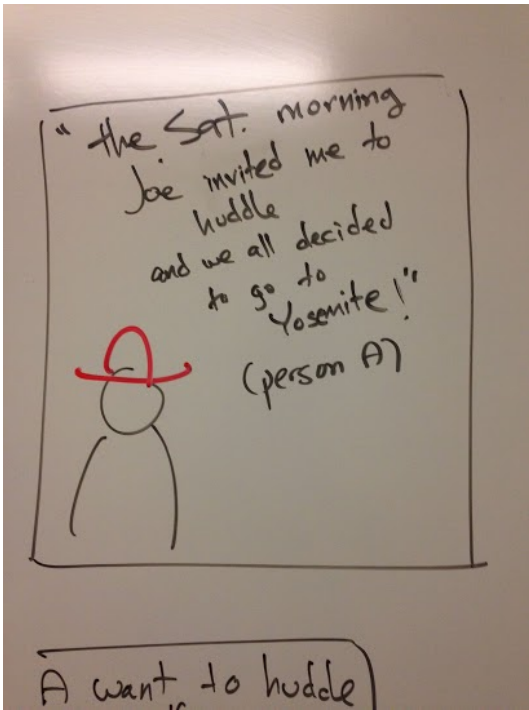 "the Sat. morning
Joe invited me to
huddle
and we all decided
to go to
Yosemite!"
(person A)
A want to huddle